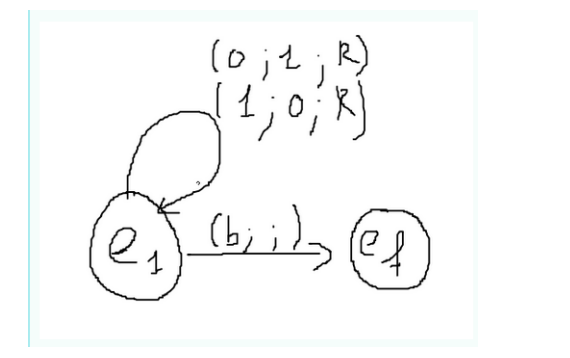 (0;1;R)
(1;0;R)
e1
(b;;)
ef